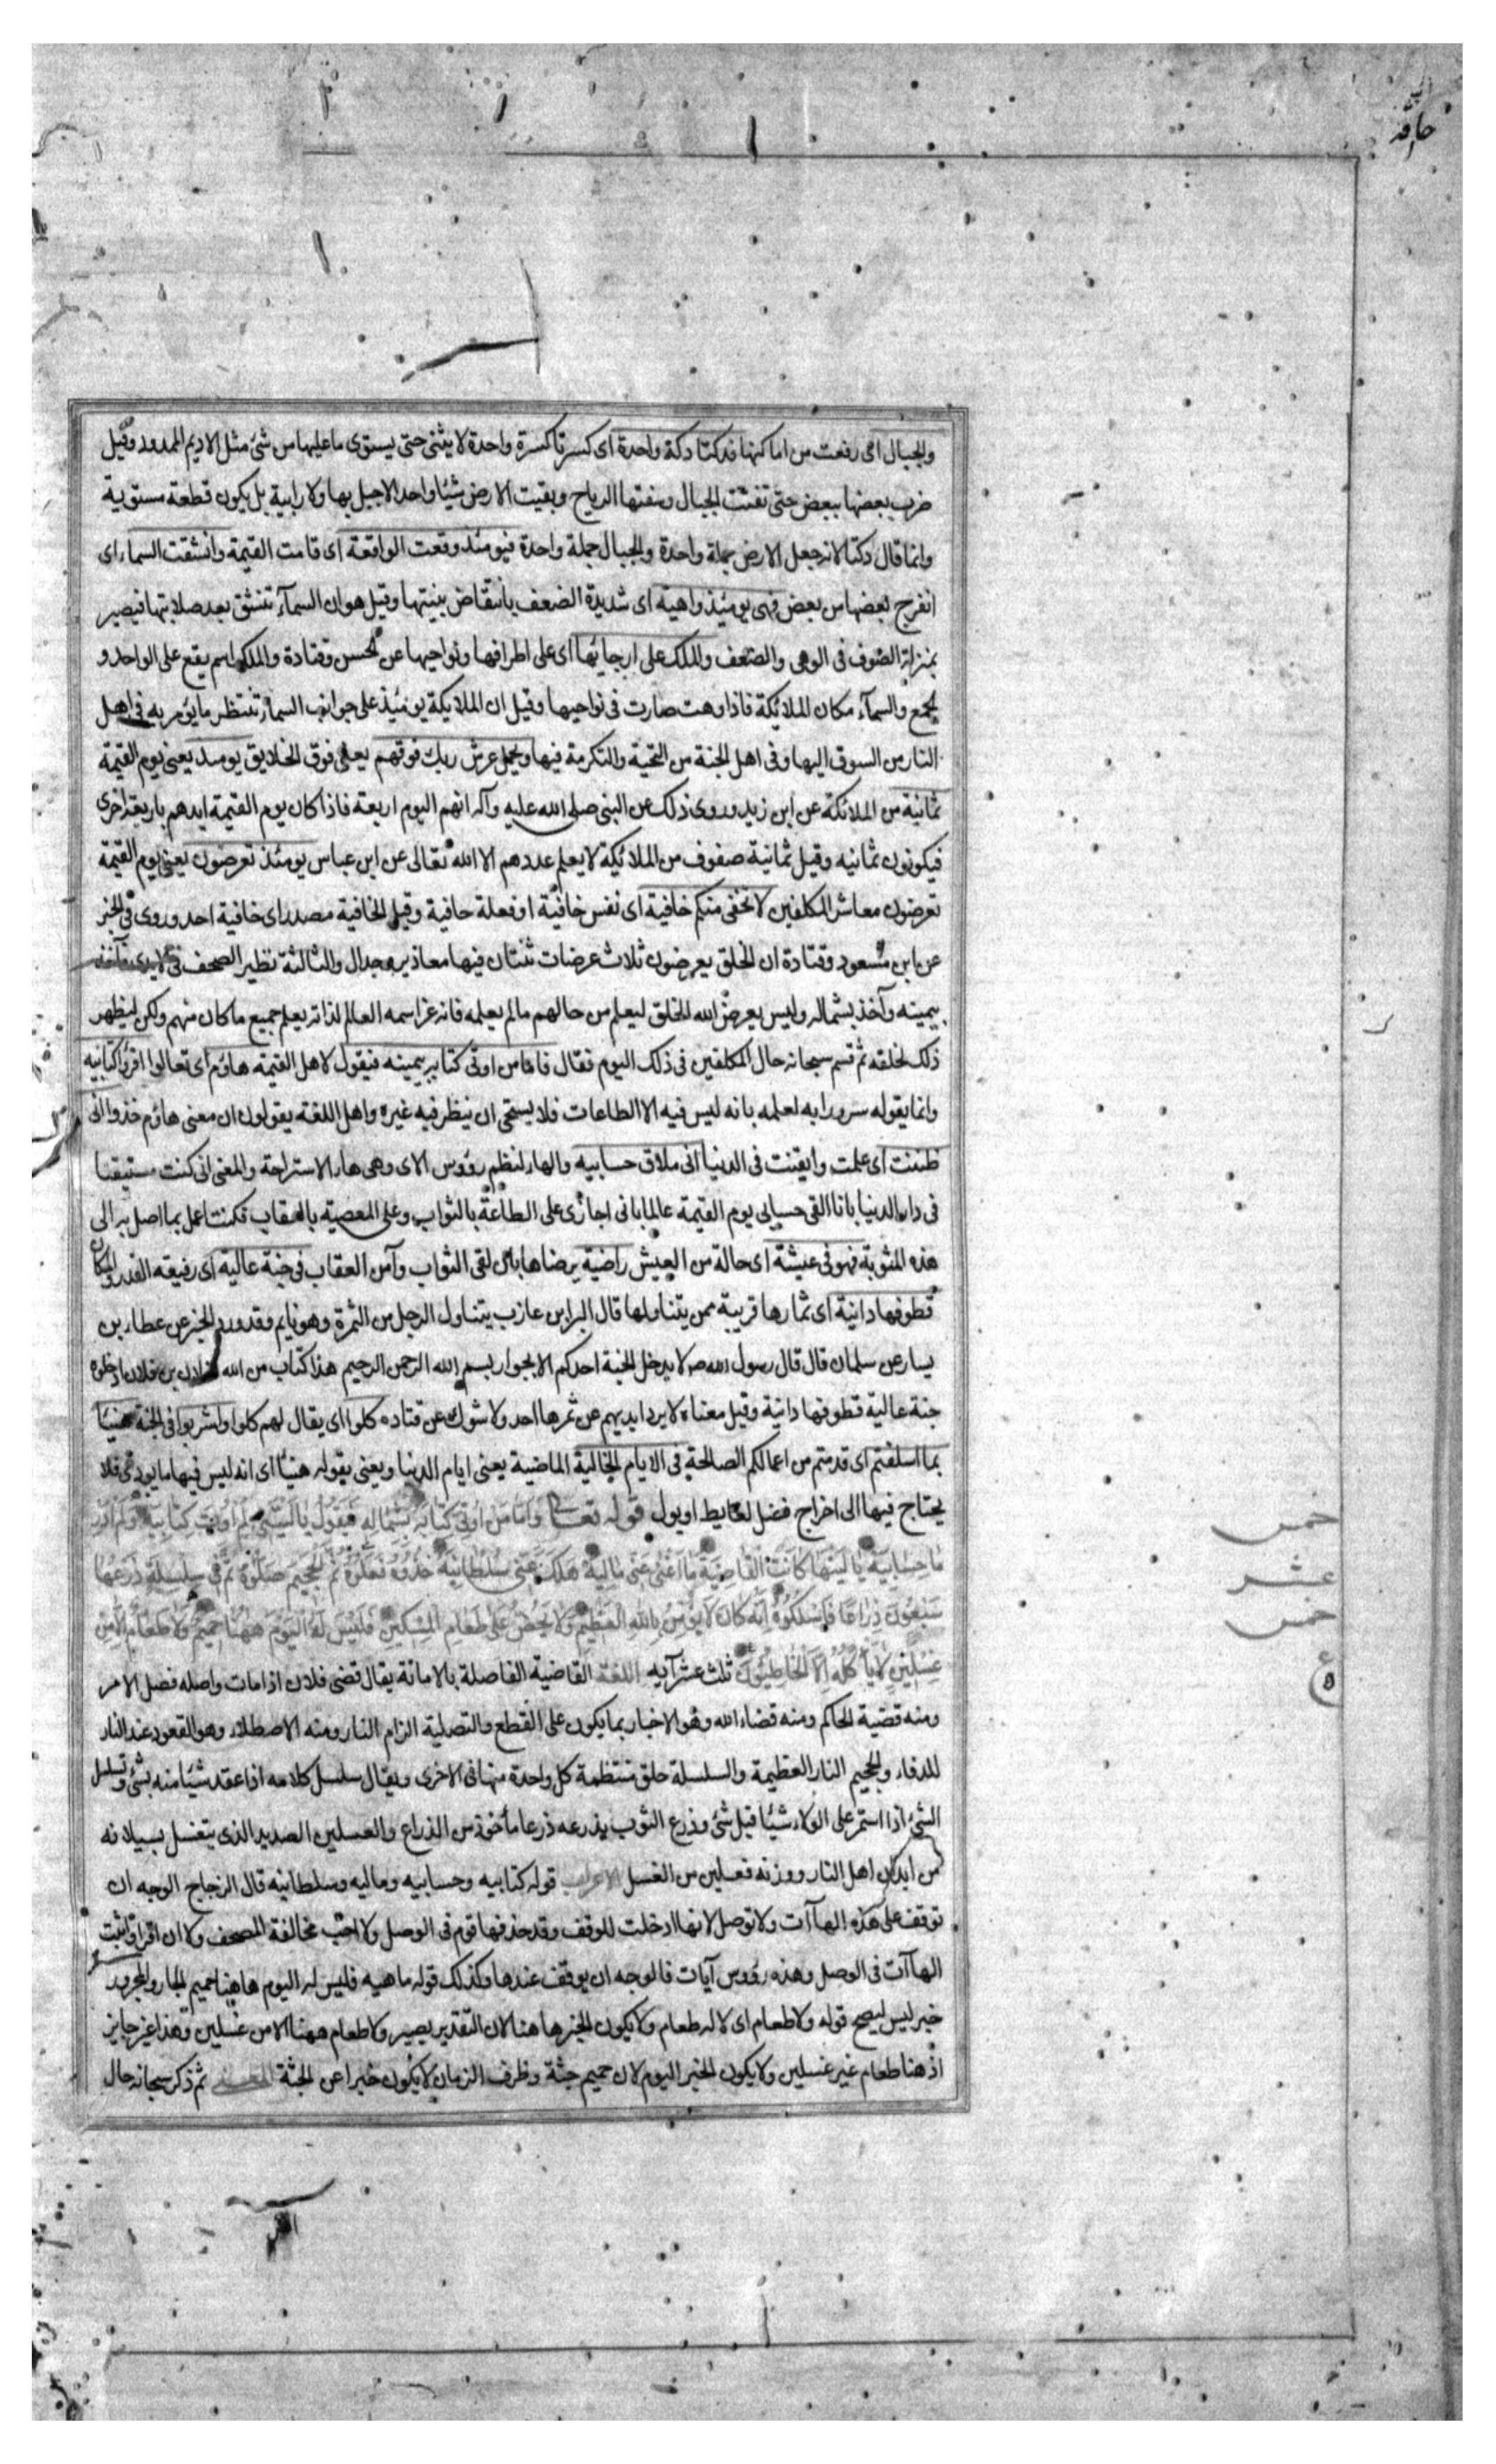 حاقه
والجبال اى رفعت من اماكنها فدكتا دكة واحدة اى كسرتا كسرة واحدة لا يثنى حتى يستوى ما عليها من شئ مثل الاديم الممدود وقيل
ضرب بعضها ببعض حتى تفتتت الجبال وسفتها الرياح وبقيت الارض شيئا واحدا لاجبل بها ولا رابية بل يكون قطعة مستوية
وانما قال دكتا لانه جعل الارض جملة واحدة والجبال جملة واحدة فيومئذ وقعت الواقعة اى قامت القيمة وانشقت السماء اى
انفرج بعضها من بعض فهى يومئذ واهية اى شديدة الضعف بانتقاض بنيتها وقيل هو ان السمآء تنشق بعد صلابتها فيصير
بمنزلة الصوف فى الوهى والضعف والملك على ارجائها اى على اطرافها ونواحيها عن الحسن وقتادة والملك اسم يقع على الواحد و
الجمع والسمآء مكان الملائكة فاذا وهت صارت فى نواحيها وقيل ان الملايكة يومئذ على جوانب السمآء تنتظر ما يؤمر به فى اهل
النار من السوق اليها وفى اهل الجنة من التحية والتكرمة فيها ويحمل عرش ربك فوقهم يعنى فوق الخلايق يومئذ يعنى يوم القيمة
ثمانية من الملائكة عن ابن زيد وروى ذلك عن النبى صلى الله عليه وآله انهم اليوم اربعة فاذا كان يوم القيمة ايدهم باربعة اخرى
فيكونون ثمانيه وقيل ثمانية صفوف من الملائكة لا يعلم عددهم الا الله تعالى عن ابن عباس يومئذ تعرضون يعنى يوم القيمة
تعرضون معاشر المكلفين لا تخفى منكم خافية اى نفس خافية او فعلة خافية وقيل الخافية مصدر اى خافية احد وروى فى الخبر
عن ابن مسعود وقتادة ان الخلق يعرضون ثلاث عرضات ثنتان فيها معاذير وجدال والثالثة تطير الصحف فى الايدى فآخذ
بيمينه وآخذ بشماله وليس يعرض الله الخلق ليعلم من حالهم مالم يعلمه فانه عز اسمه العالم لذاته يعلم جميع ما كان منهم ولكن ليظهر
ذلك لخلقه ثم قسم سبحانه حال المكلفين فى ذلك اليوم فقال فاما من اوتى كتابه بيمينه فيقول لاهل القيمة هاؤم اى تعالوا اقرؤا كتابيه
وانما يقوله سرورا به لعلمه بانه ليس فيه الا الطاعات فلا يستحى ان ينظر فيه غيره واهل اللغة يقولون ان معنى هاؤم خذوا انى
ظننت اى علمت وايقنت فى الدنيا انى ملاق حسابيه والهاء لنظم رؤوس الاى وهى هاء الاستراحة والمعنى انى كنت مستيقنا
فى دار الدنيا بانا القى حسابى يوم القيمة عالما بانى اجازى على الطاعة بالثواب وعلى المعصية بالعقاب فكنت اعمل بما اصل به الى
هذه المثوبة فهو فى عيشة اى حالة من العيش راضية يرضاها بان لقى الثواب وآمن العقاب فى جنة عالية اى رفيعه القدر والمكان
قطوفها دانية اى ثمارها قريبة ممن يتناولها قال البرا بن عازب يتناول الرجل من الثمرة وهو نايم وقد ورد الخبر عن عطا بن
يسار عن سلمان قال قال رسول الله ص لا يدخل الجنة احدكم الا بجواز بسم الله الرحمن الرحيم هذا كتاب من الله لفلان بن فلان ادخلوه
جنة عالية قطوفها دانية وقيل معناه لا يرد ايديهم عن ثمرها احد ولا شوك عن قتاده كلوا اى يقال لهم كلوا واشربوا فى الجنة هنيئا
بما اسلفتم اى قدمتم من اعمالكم الصالحة فى الايام الخالية الماضية يعنى ايام الدنيا ويعنى بقوله هنيئا اى انه ليس فيها ما يوذى فلا
يحتاج فيها الى اخراج فضل لغايط او بول قوله تعالى وَاَمَّا مَنْ اُوتِىَ كِتَابَهُ بِشِمَالِهِ فَيَقُولُ يَا لَيْتَنِى لَمْ اُوتَ كِتَابِيَهْ وَلَمْ اَدْرِ
مَا حِسَابِيَهْ يَا لَيْتَهَا كَانَتِ الْقَاضِيَةَ مَا اَغْنَى عَنِّى مَالِيَهْ هَلَكَ عَنِّى سُلْطَانِيَهْ خُذُوهُ فَغُلُّوهُ ثُمَّ الْجَحِيمَ صَلُّوهُ ثُمَّ فِى سِلْسِلَةٍ ذَرْعُهَا
سَبْعُونَ ذِرَاعًا فَاسْلُكُوهُ اِنَّهُ كَانَ لَا يُؤْمِنُ بِاللهِ الْعَظِيمِ وَلَا يَحُضُّ عَلَى طَعَامِ الْمِسْكِينِ فَلَيْسَ لَهُ الْيَوْمَ هٰهُنَا حَمِيمٌ وَلَا طَعَامٌ اِلَّا مِنْ
غِسْلِينٍ لَا يَأْكُلُهُ اِلَّا الْخَاطِئُونَ ثلث عشر آيه اللغة القاضية الفاصلة بالاماتة يقال قضى فلان اذا مات واصله فصل الامر
ومنه قضية الحاكم ومنه قضاء الله وهو الاخبار بما يكون على القطع والتصلية الزام النار ومنه الاصطلاء وهو القعود عند النار
للدفاء والجحيم النار العظيمة والسلسلة حلق منتظمة كل واحدة منها فى الاخرى ويقال سلسل كلامه اذا عقد شيئا منه بشئ وتسلسل
الشئ اذا استمر على الولاء شيئا قبل شئ وذرع الثوب يذرعه ذرعا مأخوذ من الذراع والغسلين الصديد الذى يتغسل بسيلانه
من ابدان اهل النار ووزنه فعلين من الغسل الاعراب قوله كتابيه وحسابيه وماليه وسلطانيه قال الزجاج الوجه ان
توقف على هذه الهاآت ولا توصل لانها ادخلت للوقف وقد حذفها قوم فى الوصل ولا احب مخالفة المصحف ولا ان اقرا واثبت
الهاآت فى الوصل وهذه رؤوس آيات فالوجه ان يوقف عندها وكذلك قوله ماهيه فليس له اليوم هاهنا حميم الجار والمجرور
خبر ليس ليصح قوله ولا طعام اى لا له طعام ولا يكون الخبر هاهنا لان التقدير يصير ولا طعام ههنا الا من غسلين وهذا غير جايز
اذ هنا طعام غير غسلين ولا يكون الخبر اليوم لان حميم جثة وظرف الزمان لا يكون خبرا عن الجثة المعنى ثم ذكر سبحانه حال
خمس
عشر
خمس